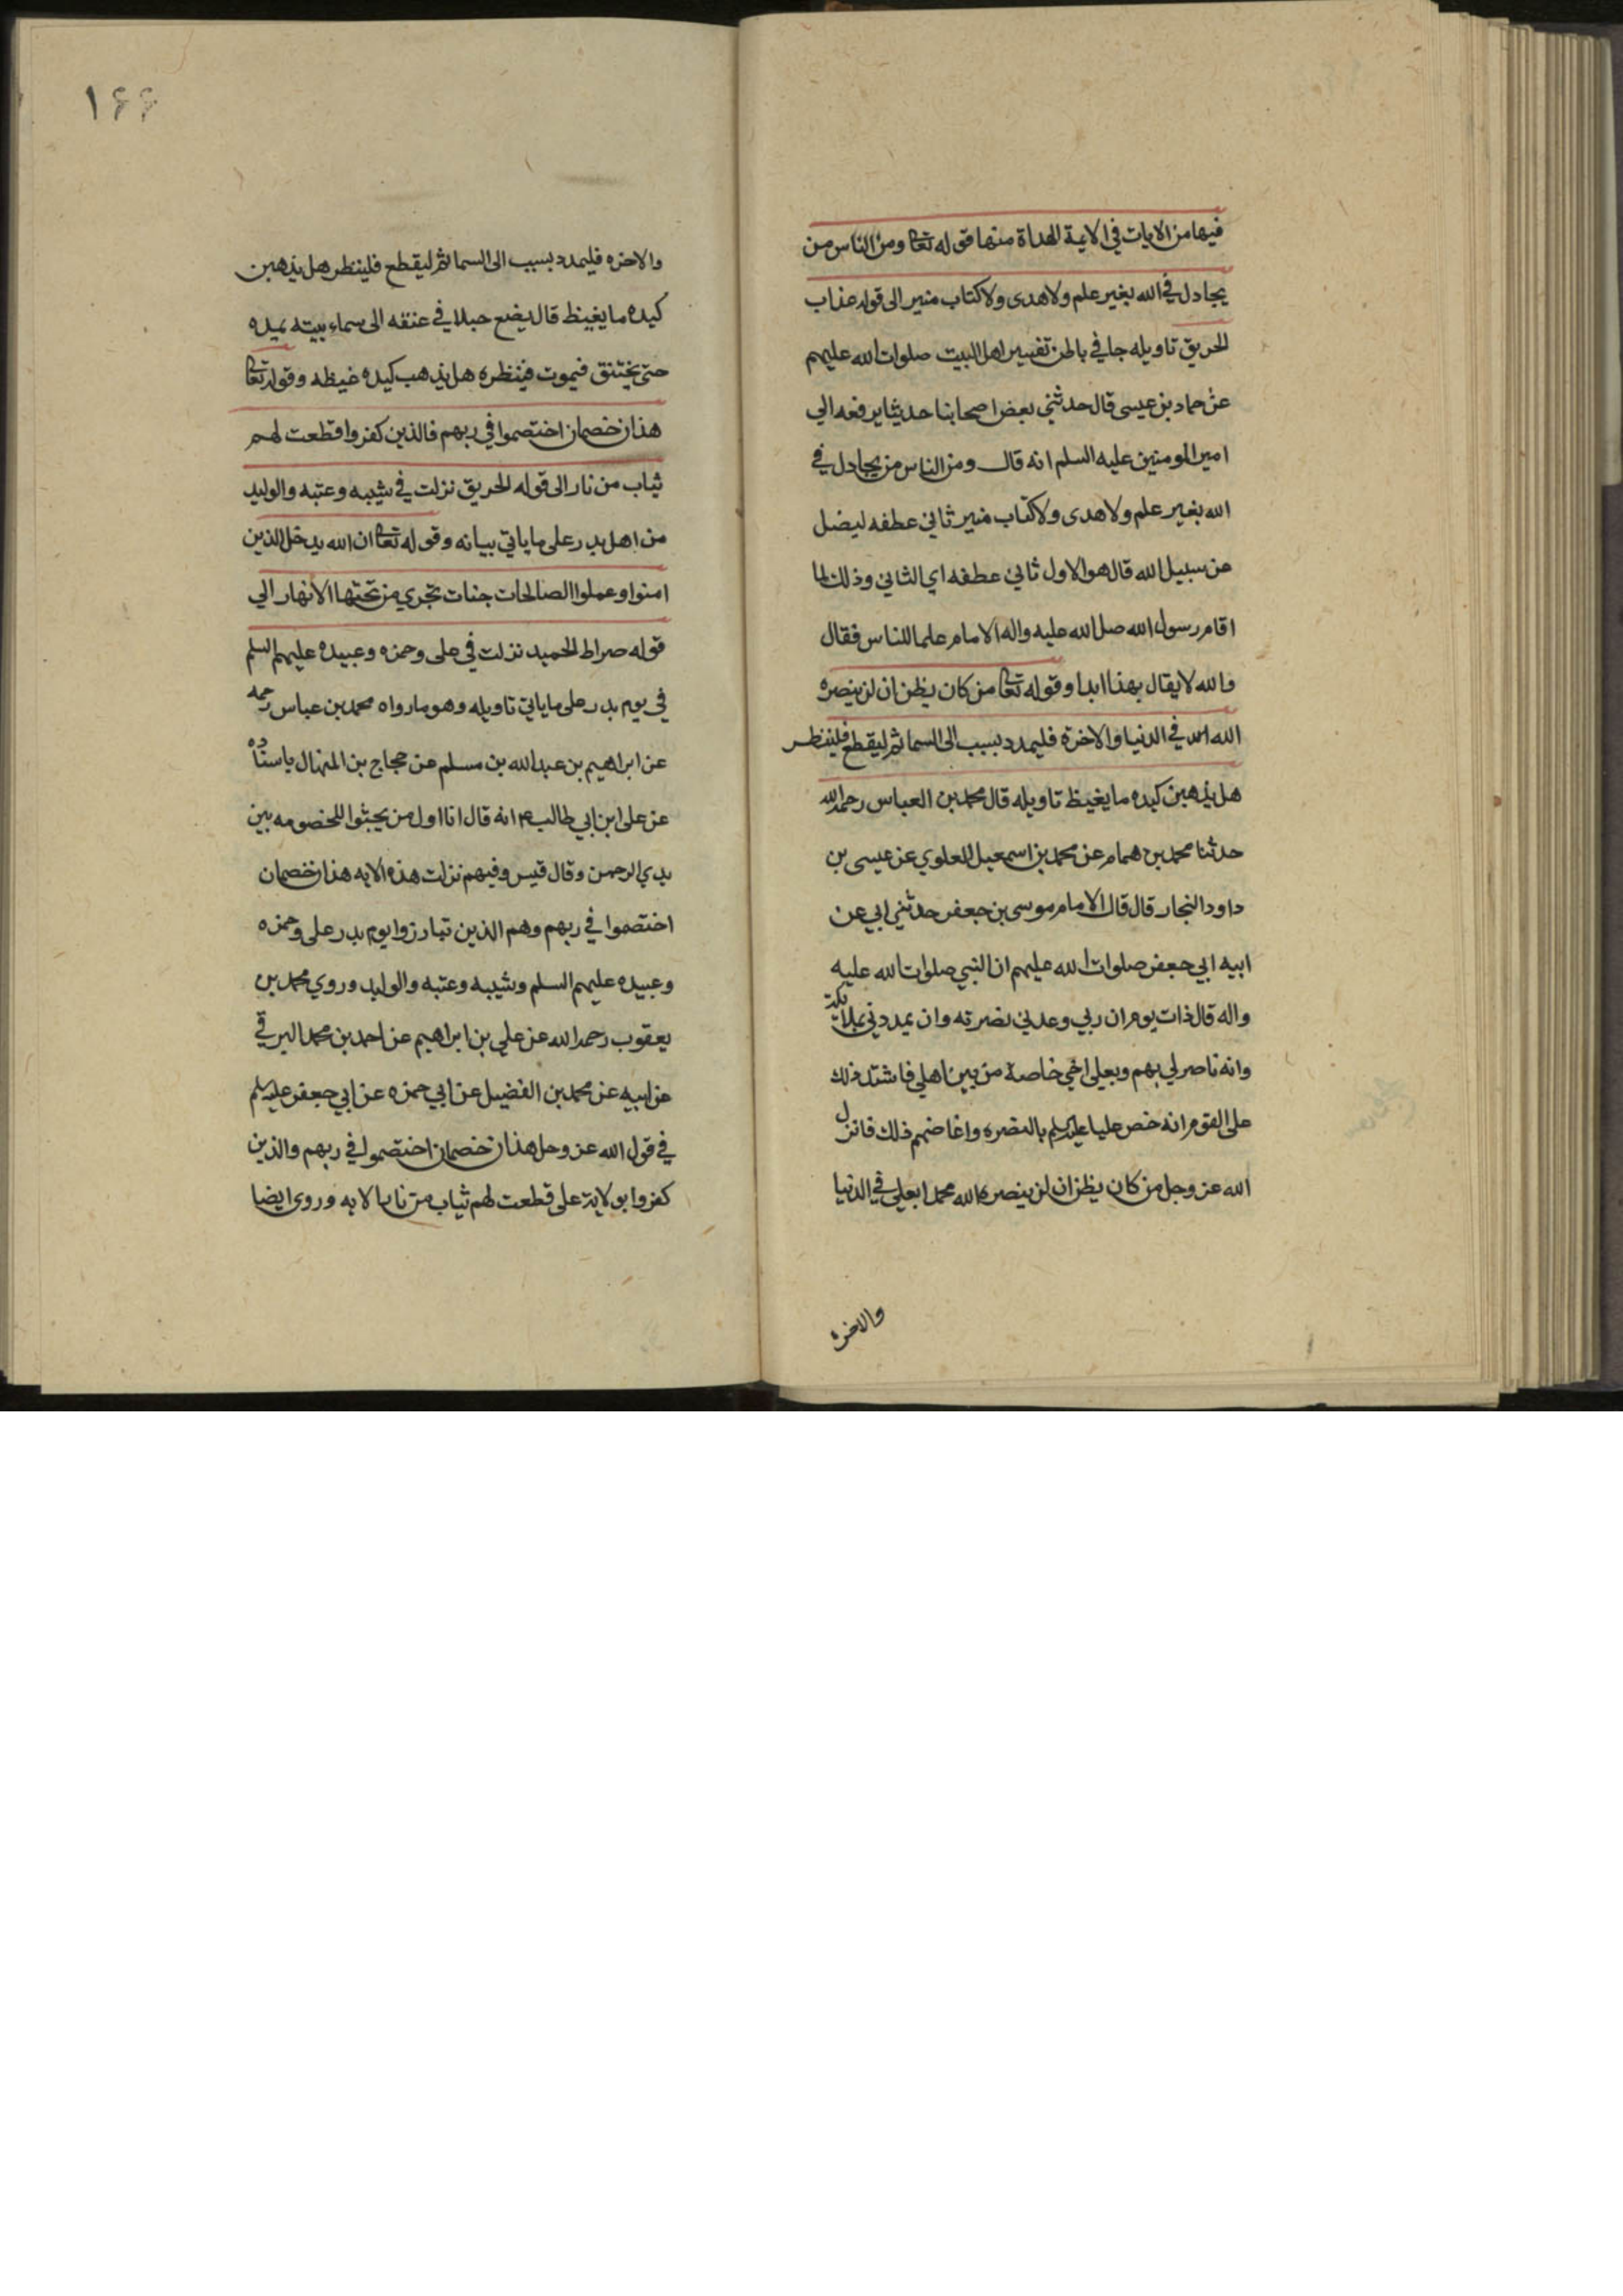 فيها من الايات في الايمة الهداة منها قوله تعالى ومن الناس من
يجادل في الله بغير علم ولا هدى ولا كتاب منير الى قوله عذاب
الحريق تاويله جا في باطن تفسير اهل البيت صلوات الله عليهم
عن حماد بن عيسى قال حدثني بعض اصحابنا حديثا يرفعه الي
امير المومنين عليه السلم انه قال ومن الناس من يجادل في
الله بغير علم ولا هدى ولا كتاب منير ثاني عطفه ليضل
عن سبيل الله قال هو الاول ثاني عطفه اي الثاني وذلك لما
اقام رسول الله صل الله عليه واله الامام علما للناس فقال
والله لا يقال بهذا ابدا وقوله تعالى من كان يظن ان لن ينصره
الله في الدنيا والاخرة فليمدد بسبب الى السما ثم ليقطع فلينظر
هل يذهبن كيده ما يغيظ تاويله قال محمد بن العباس رحمه الله
حدثنا محمد بن همام عن محمد بن اسمعيل العلوي عن عيسى بن
داود النجار قال قال الامام موسى بن جعفر حدثني ابي عن
ابيه ابي جعفر صلوات الله عليهم ان النبي صلوات الله عليه
واله قال ذات يوم ان ربي وعدني نصرته وان يمددني بملايكته
وانه ناصر لي بهم وبعلي اخي خاصة من بين اهلي فاشتد ذلك
على القوم انه خص عليا عليه السلم بالنصره واغاضهم ذلك فانزل
الله عز وجل من كان يظن ان لن ينصره الله محمدا بعلي في الدنيا
والاخره
١٦٦
والاخره فليمدد بسبب الى السما ثم ليقطع فلينظر هل يذهبن
كيده ما يغيظ قال يضع حبلا في عنقه الى سماء بيته يمده
حتى يختنق فيموت فينظره هل يذهب كيده غيظه وقوله تعالى
هذان خصمان اختصموا في ربهم فالذين كفروا قطعت لهم
ثياب من نار الى قوله الحريق نزلت في شيبه وعتبه والوليد
من اهل بدر على ما ياتي بيانه وقوله تعالى ان الله يدخل الذين
امنوا وعملوا الصالحات جنات تجري من تحتها الانهار الي
قوله صراط الحميد نزلت في على وحمزه وعبيده عليهم السلم
في يوم بدر على ما ياتي تاويله وهو ما رواه محمد بن عباس رحمه
عن ابراهيم بن عبد الله بن مسلم عن حجاج بن المنهال باسناده
عن على ابن ابي طالب ع انه قال انا اول من يجثوا للخصومه بين
يدي الرحمن وقال قيس وفيهم نزلت هذه الايه هذان خصمان
اختصموا في ربهم وهم الذين تبارزوا يوم بدر على وحمزه
وعبيده عليهم السلم وشيبه وعتبه والوليد وروي محمد بن
يعقوب رحمه الله عن علي بن ابراهيم عن احمد بن محمد البرقي
عن ابيه عن محمد بن الفضيل عن ابي حمزه عن ابي جعفر عليه السلم
في قول الله عز وجل هذان خصمان اختصموا في ربهم والذين
كفروا بولاية على قطعت لهم ثياب من نار الايه وروى ايضا